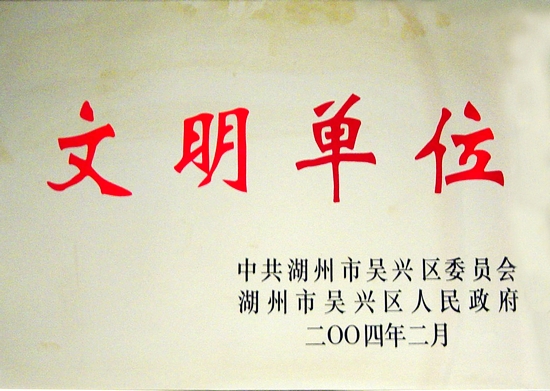 文明单位
中共湖州市吴兴区委员会
湖州市吴兴区人民政府
二〇〇四年二月